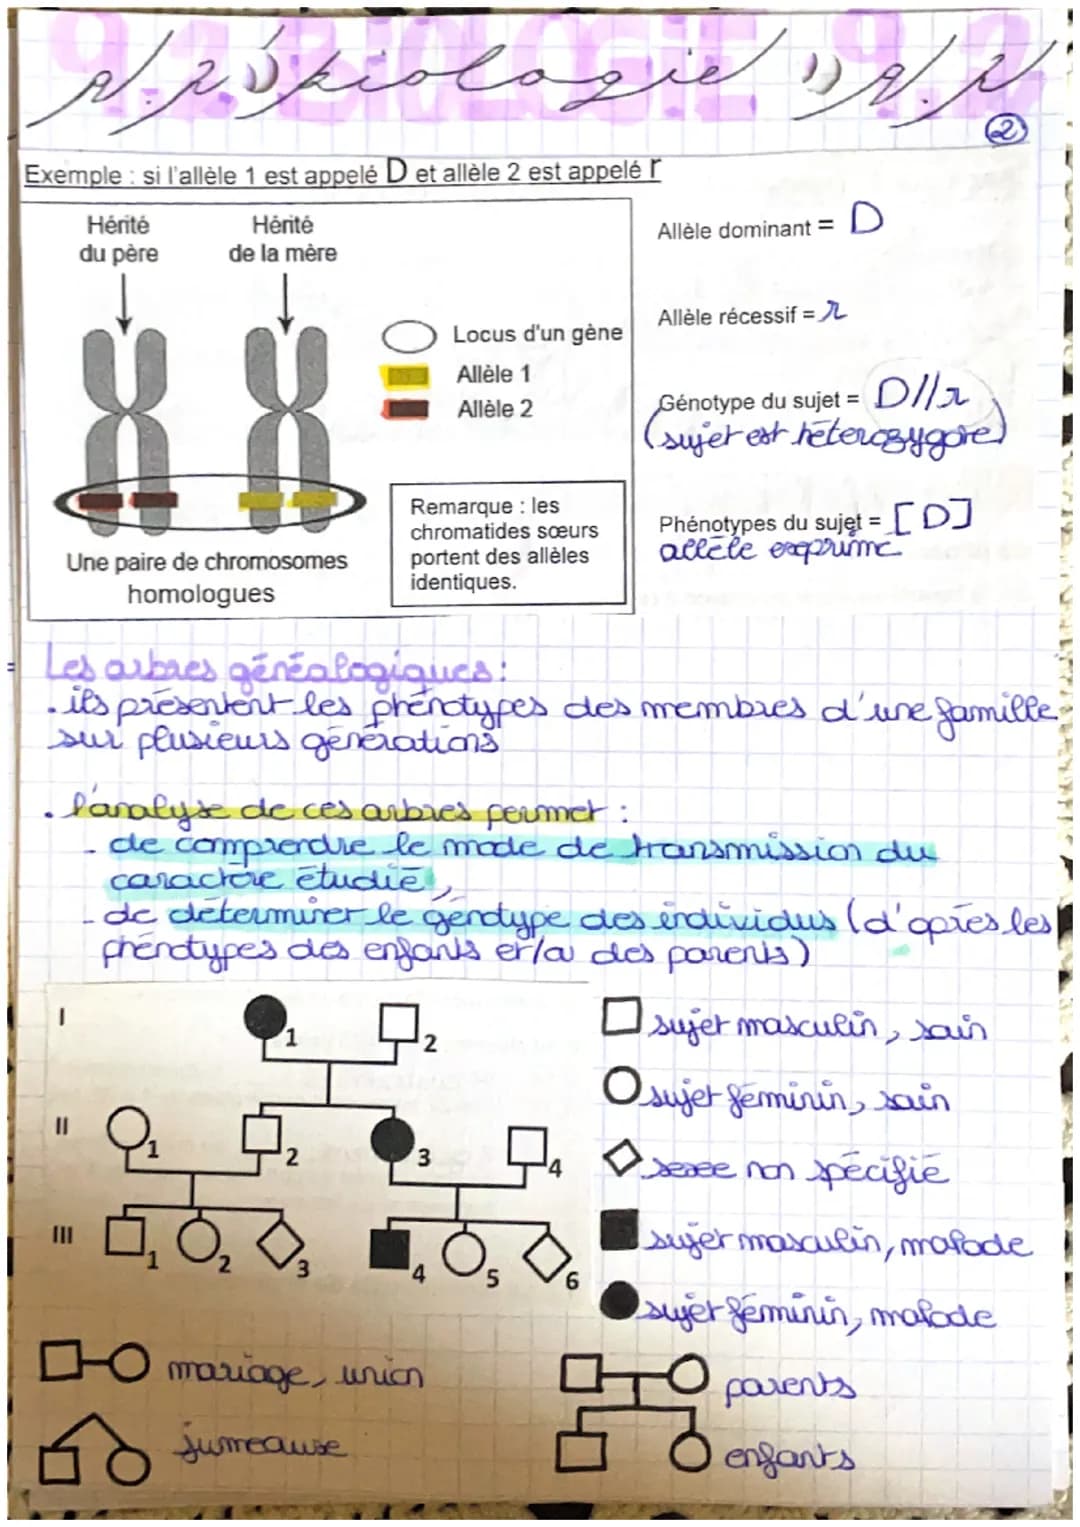 9.2. BIOLOGIE 9.2
9.2 1) biologie 1) 9.2
2
Exemple : si l'allèle 1 est appelé D et allèle 2 est appelé r
Hérité
du père
Hérité
de la mère
Locus d'un gène
Allèle 1
Allèle 2
Remarque : les
chromatides sœurs
portent des allèles
identiques.
Une paire de chromosomes
homologues
Allèle dominant = D
Allèle récessif = r
Génotype du sujet = D//r
(sujet est hétérozygore)
Phénotypes du sujet = [D]
allèle exprimé
Les arbres généalogiques:
. ils présentent les phénotypes des membres d'une famille
sur plusieurs générations
. l'analyse de ces arbres permet :
- de comprendre le mode de transmission du
caractère étudié,
- de déterminer le génotype des individus (d'après les
phénotypes des enfants et/ou des parents)
I
1
2
II
1
2
3
4
III
1
2
3
4
5
6
sujet masculin, sain
sujet féminin, sain
sexe non spécifié
sujet masculin, malade
sujet féminin, malade
mariage, union
jumeaux
parents
enfants